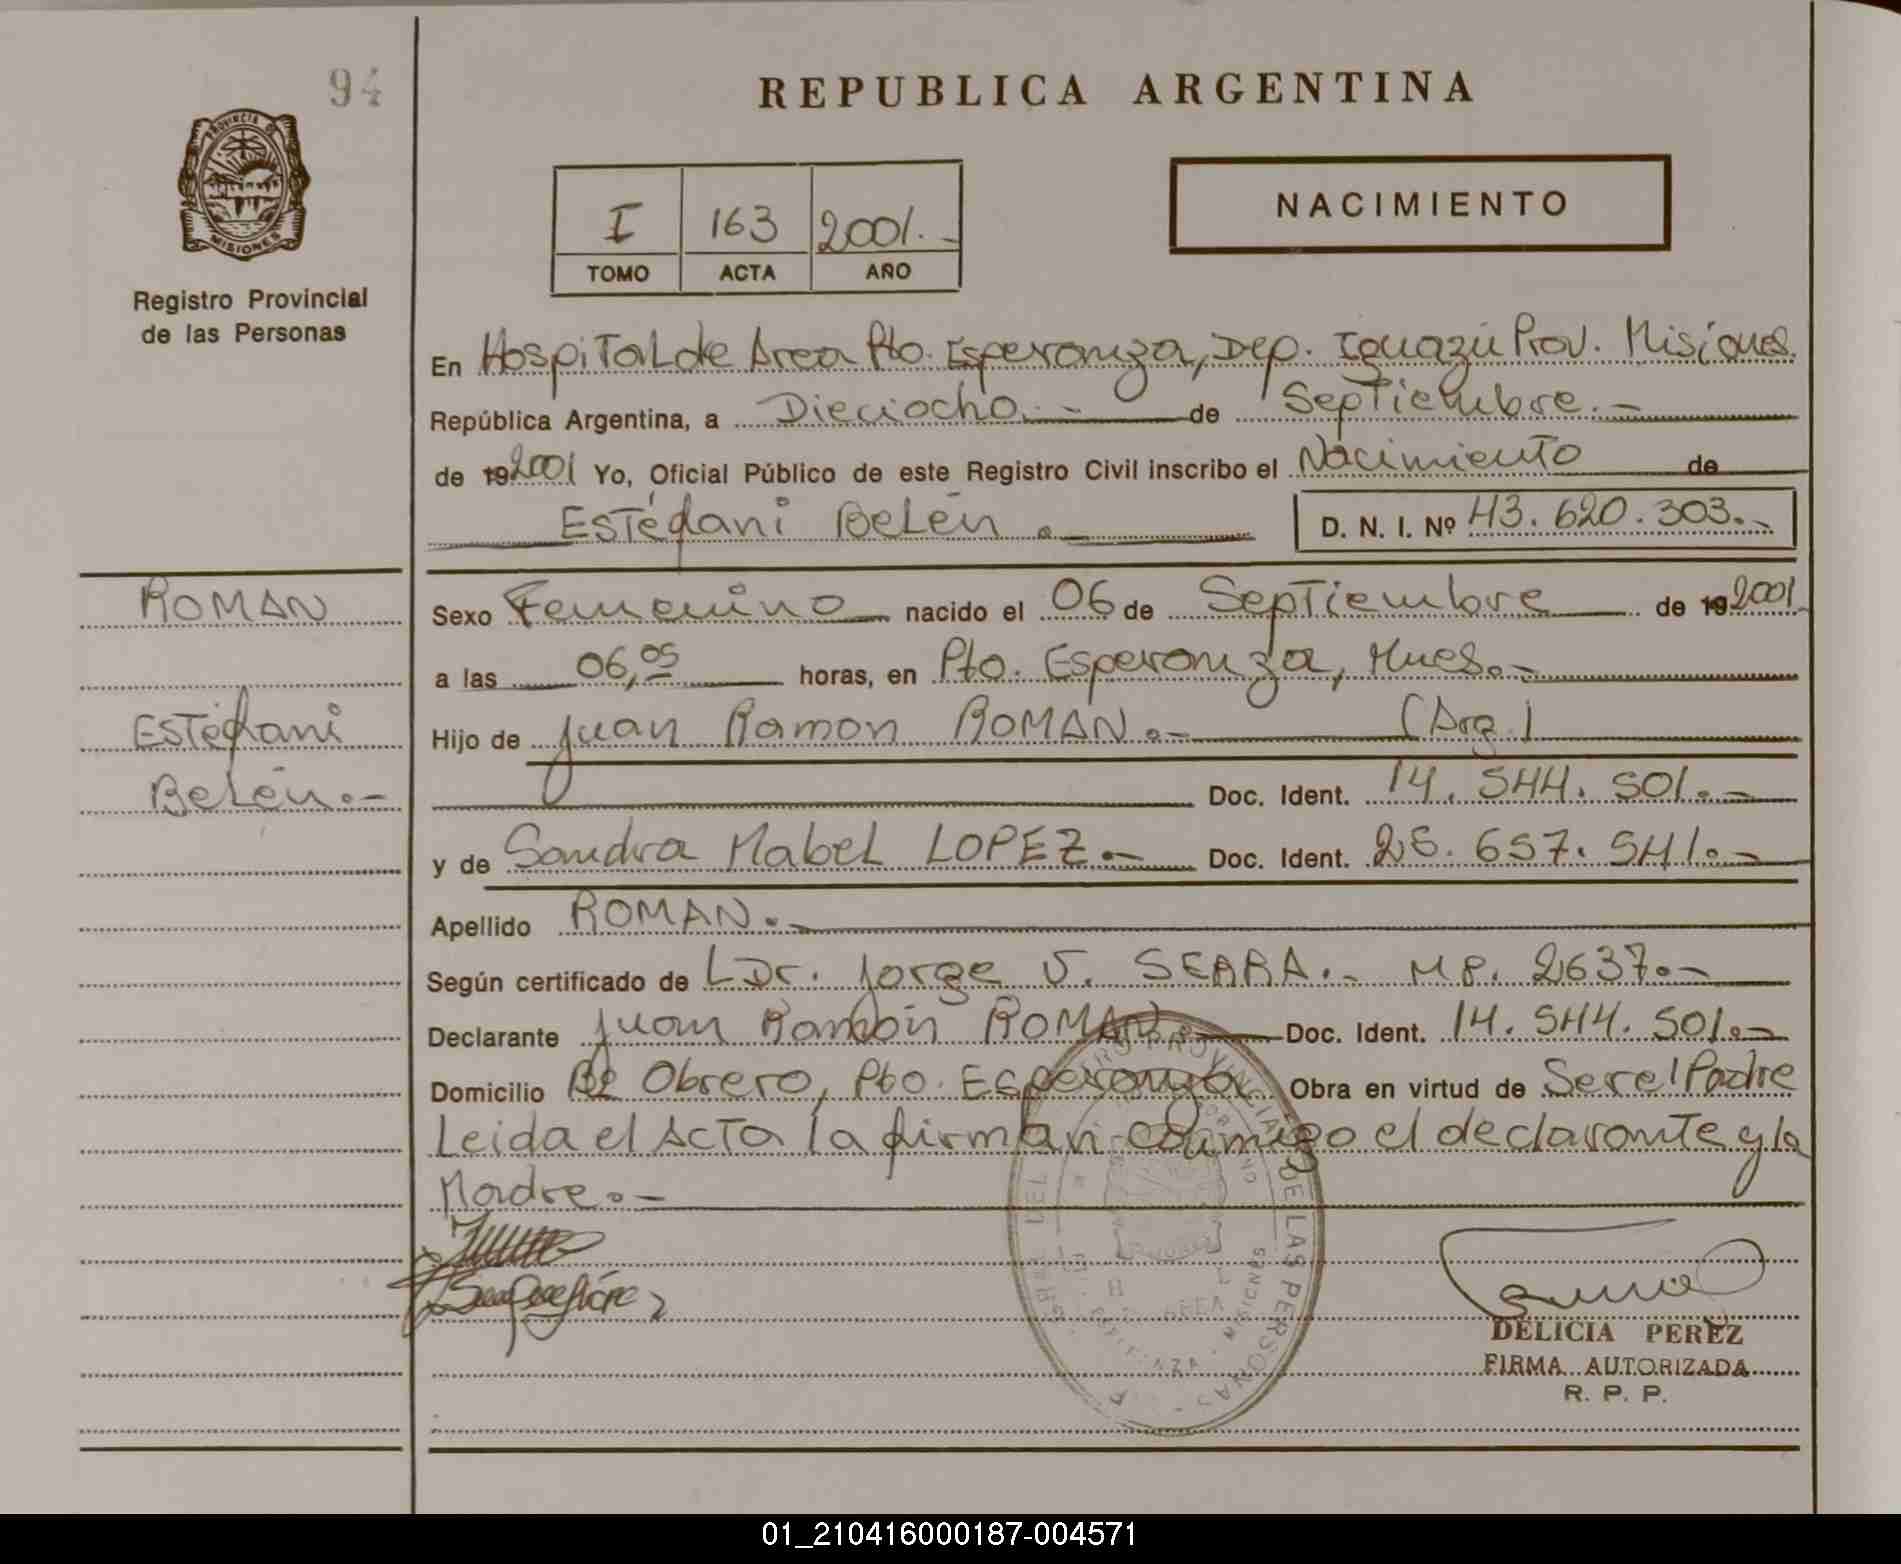 94
REPUBLICA ARGENTINA
PROVINCIA DE
MISIONES
Registro Provincial
de las Personas
NACIMIENTO
I 163 2001.-
TOMO ACTA AÑO
En Hospital de Area Pto. Esperanza, Dep. Iguazú Prov. Misiones.
República Argentina, a Dieciocho.- de Septiembre.-
de 192001 Yo, Oficial Público de este Registro Civil inscribo el Nacimiento de
Estéfani Belén.
D. N. I. Nº 43.620.303.-
ROMAN
Estéfani
Belén.-
Sexo Femenino nacido el 06 de Septiembre de 192001
a las 06,05 horas, en Pto. Esperanza, Mnes.-
Hijo de Juan Ramon ROMAN.- (Arg.)
Doc. Ident. 14.544.501.-
y de Sandra Mabel LOPEZ.- Doc. Ident. 25.657.541.-
Apellido ROMAN.-
Según certificado de Dr. Jorge SEARA.- M.P. 2637.-
Declarante Juan Ramón ROMAN Doc. Ident. 14.544.501.-
Domicilio Bº Obrero, Pto. Esperanza Obra en virtud de Ser el Padre
Leida el Acta la firman conmigo el declarante y la
Madre.-
REGISTRO PROVINCIAL DE LAS PERSONAS
DELICIA PEREZ
FIRMA AUTORIZADA
R. P. P.
01_210416000187-004571